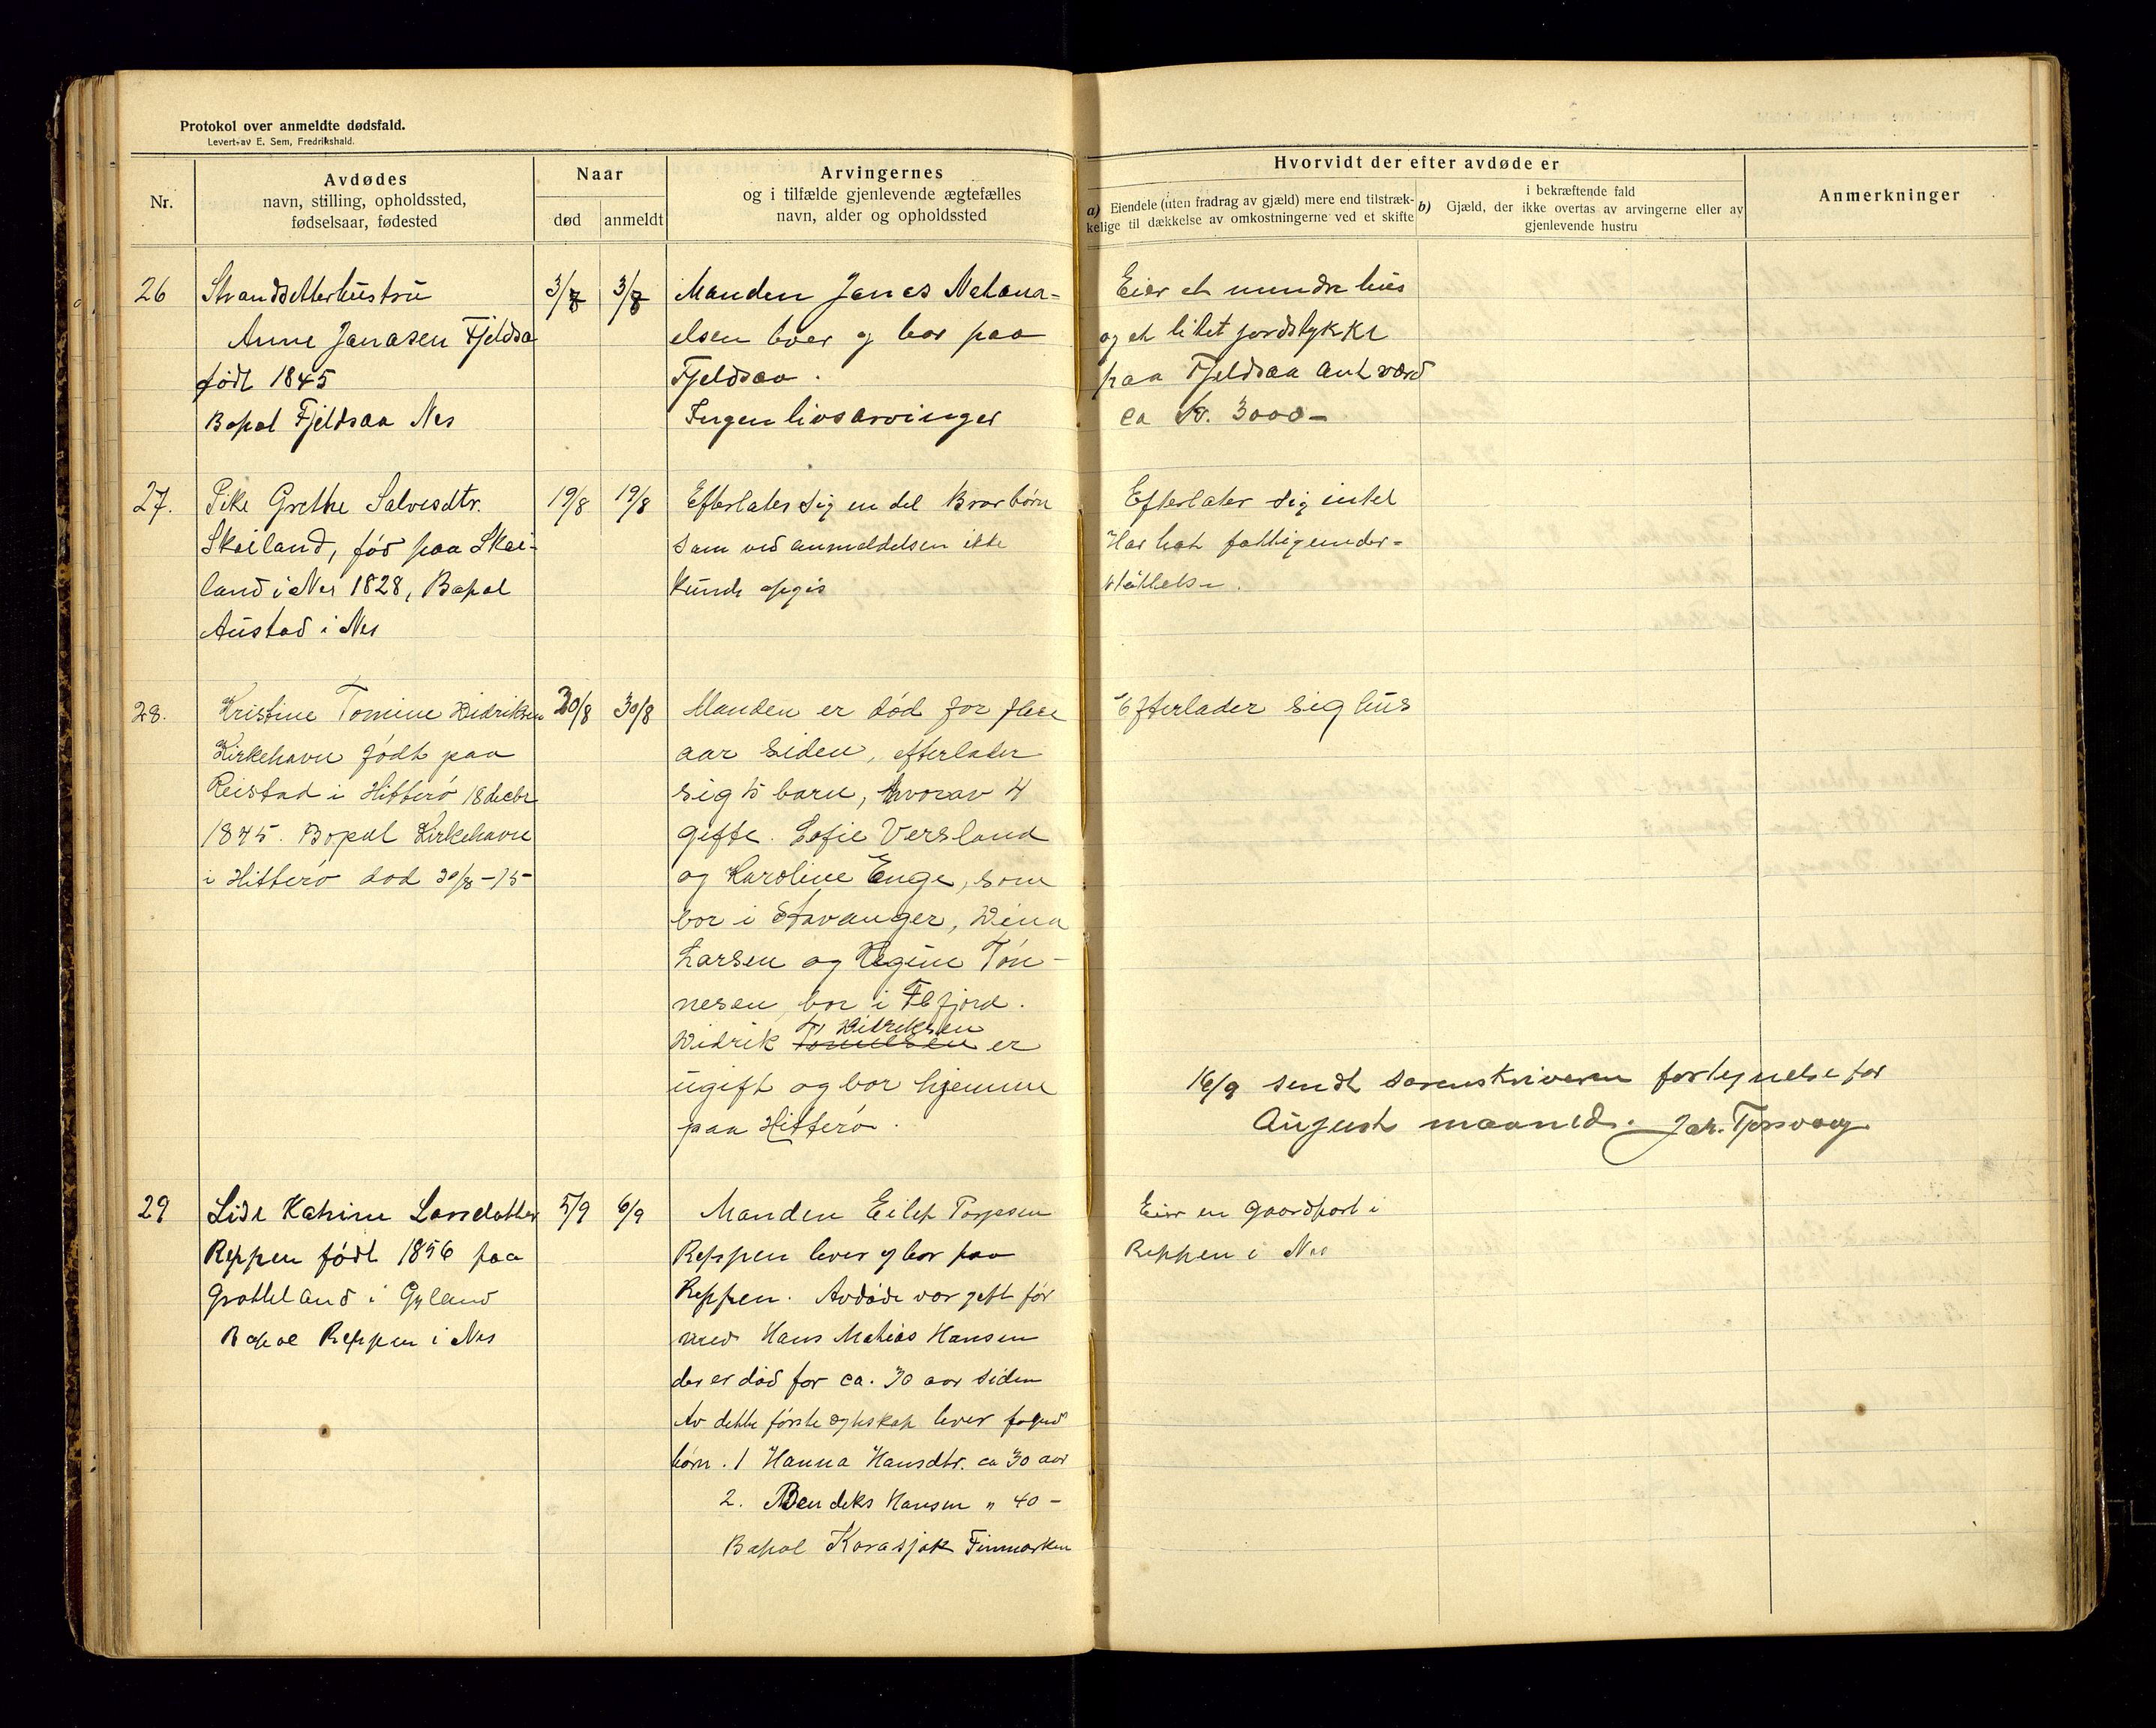 Protokol over anmeldte dødsfald.
Levert av E. Sem, Fredrikshald.
Nr.
Avdødes
navn, stilling, opholdssted,
fødselsaar, fødested
Naar
død
anmeldt
Arvingernes
og i tilfælde gjenlevende ægtefælles
navn, alder og opholdssted
Hvorvidt der efter avdøde er
a) Eiendele (uten fradrag av gjæld) mere end tilstræk-
kelige til dækkelse av omkostningerne ved et skifte
i bekræftende fald
b) Gjæld, der ikke overtas av arvingerne eller av
gjenlevende hustru
Anmerkninger
26
Strandsitterhustru
Anne Jonasen Fjeldsa
født 1845
Bopal Fjeldsaa Nes
3/8
3/8
Manden Jonas Natana-
elsen lever og bor paa
Fjeldsaa.
Ingen livsarvinger
Eier et mindre hus
og et litet jordstykke
paa Fjeldsaa ant værd
ca Kr. 3000-
27.
Pike Grethe Salvesdtr.
Skeiland, fød paa Skei-
land i Nes 1828, Bopal
Austad i Nes
19/8
19/8
Efterlater sig en del Brorbørn
som ved anmeldelsen ikke
kunde opgis
Efterlater sig intet
Har hat fattigunder-
støttelse.
28.
Kristine Tomine Didriksen
Kirkehavn født paa
Reistad i Hitterø 18 decbr
1845. Bopal Kirkehavn
i Hitterø død 30/8-15-
30/8
30/8
Manden er død for flere
aar siden, efterlader
sig 5 barn, hvorav 4
gifte. Sofie Versland
og Karoline Enge, som
bor i Stavanger, Dina
Larsen og Regine Tøn-
nesen, bor i Flefjord.
T. Didriksen
Didrik Tomesen er
ugift og bor hjemme
paa Hitterø.
Efterlader sig hus
16/9 sendt sorenskriveren fortegnelse for
August maaned. Joh. Tjørsvaag
29
Lide Katrine Larsdatter
Reppen født 1856 paa
Grøtteland i Gyland
Bopal Reppen i Nes
5/9
6/9
Manden Eilef Torjesen
Reppen lever og bor paa
Reppen. Avdøde var gift før
med Hans Matias Hansen
der er død for ca. 30 aar siden
Av dette første egteskap lever følgend
børn. 1 Hanna Hansdtr. ca 30 aar
2. Bendiks Hansen " 40 -
Bopal Karasjok Finmarken
Eier en gaardpart i
Reppen i Nes